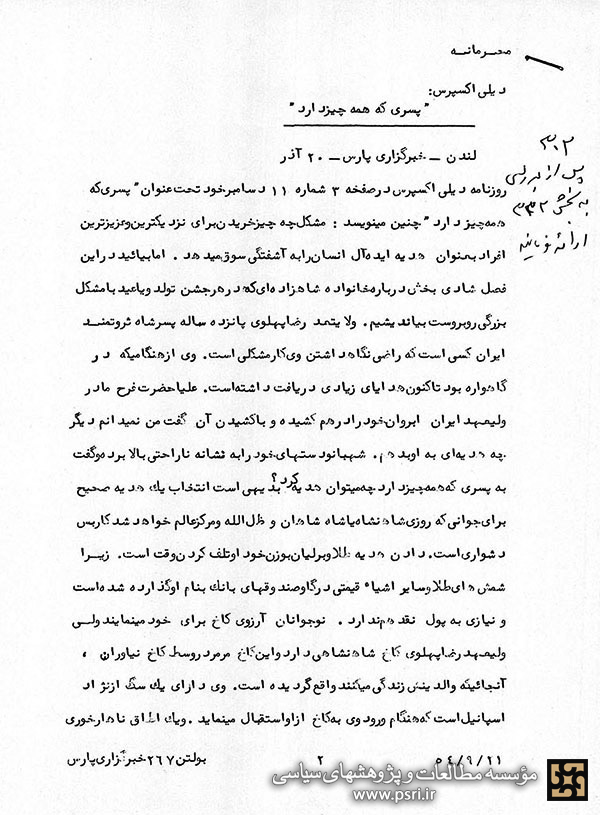 محرمانه
دیلی اکسپرس:
"پسری که همه چیز دارد"
لندن - خبرگزاری پارس - ۲۰ آذر
روزنامه دیلی اکسپرس در صفحه ۳ شماره ۱۱ دسامبر خود تحت عنوان "پسری که
همه چیز دارد" چنین مینویسد: مشکل چه چیز خریدن برای نزدیکترین و عزیزترین
افراد بعنوان هدیه ایده آل انسان را به آشفتگی سوق میدهد. اما بیائید در این
فصل شادی بخش درباره خانواده شاهزاده ای که در هر جشن تولد و یا عید با مشکل
بزرگی روبروست بیاندیشیم. ولایتعهد رضا پهلوی پانزده ساله پسر شاه ثروتمند
ایران کسی است که راضی نگاهداشتن وی کار مشکلی است. وی از هنگامیکه در
گاهواره بود تاکنون هدایای زیادی دریافت داشته است. علیاحضرت فرح مادر
ولیعهد ایران ابروان خود را درهم کشیده و با کشیدن آن گفت من نمیدانم دیگر
چه هدیه ای به او بدهم. شهبانو دستهای خود را به نشانه ناراحتی بالا برده و گفت
به پسری که همه چیز دارد چه میتوان هدیه کرد؟ بدیهی است انتخاب یک هدیه صحیح
برای جوانی که روزی شاهنشاه یا شاه شاهان و ظل الله و مرکز عالم خواهد شد کار بس
دشواری است. دادن هدیه طلا و برلیان بوزن خود او تلف کردن وقت است. زیرا
شمش های طلا و سایر اشیاء قیمتی در گاوصندوقهای بانک بنام او گذارده شده است
و نیازی به پول نقد هم ندارد. نوجوانان آرزوی کاخ برای خود مینمایند ولی
ولیعهد رضا پهلوی کاخ شاهنشاهی دارد و این کاخ مرمر در وسط کاخ نیاوران،
آنجائیکه والدینش زندگی میکنند واقع گردیده است. وی دارای یک سگ از نژاد
اسپانیل است که هنگام ورود وی به کاخ از او استقبال مینماید. و یک اطاق ناهارخوری
۵۴/۹/۲۱ ۲ بولتن ۲۶۷ خبرگزاری پارس
۳۰۲
پس از بررسی
به بخش ۳۳۲
ارائه فرمایید
مؤسسه مطالعات و پژوهشهای سیاسی
www.psri.ir